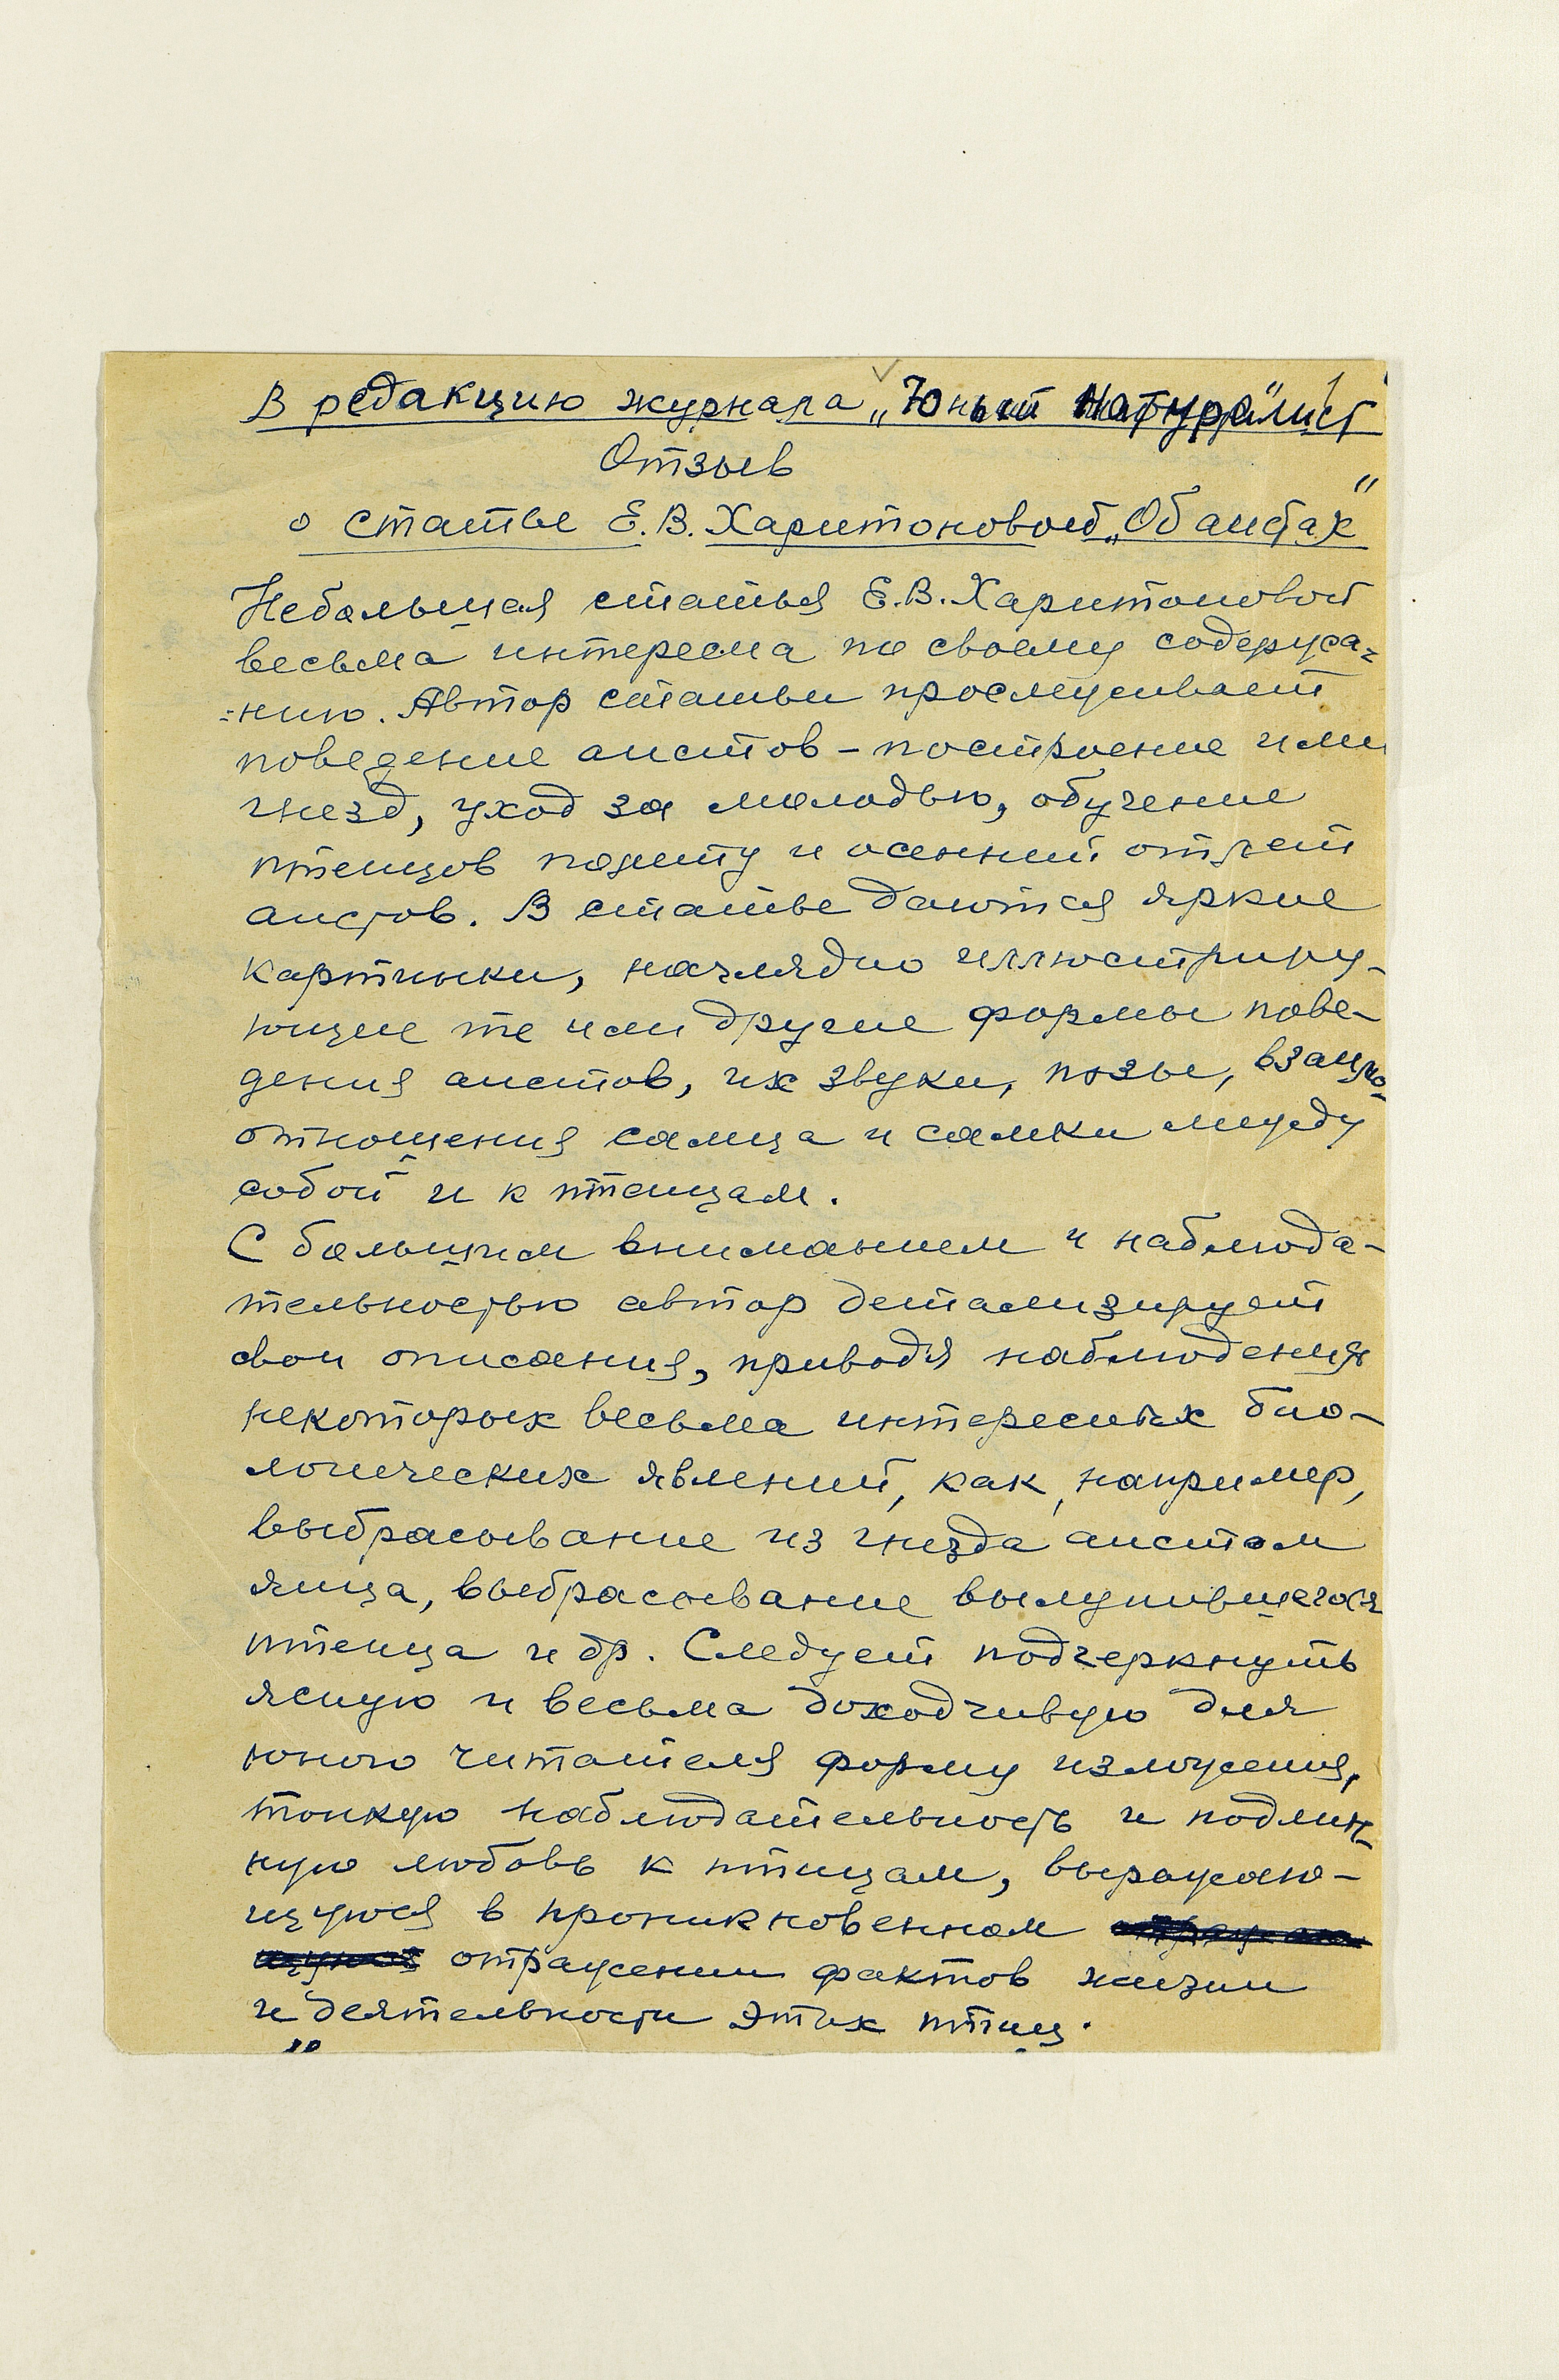 В редакцию журнала „Юный Натуралист"
Отзыв
о статье Е.В. Харитоновой „Об аистах"
Небольшая статья Е.В. Харитоновой
весьма интересна по своему содержа=
=нию. Автор статьи прослеживает
поведение аистов – построение ими
гнезд, уход за молодью, обучение
птенцов полету и осенний отлет
аистов. В статье даются яркие
картинки, наглядно иллюстриру-
ющие те или другие формы пове-
дения аистов, их звуки, позы, взаимо-
отношения самца и самки между
собой и к птенцам.
С большим вниманием и наблюда-
тельностью автор детализирует
свои описания, приводя наблюдения
некоторых весьма интересных био-
логических явлений, как, например,
выбрасывание из гнезда аистом
яйца, выбрасывание вылупившегося
птенца и др. Следует подчеркнуть
ясную и весьма доходчивую для
юного читателя форму изложения,
тонкую наблюдательность и подлин-
ную любовь к птицам, выражаю-
щуюся в проникновенном
отражении фактов жизни
и деятельности этих птиц.